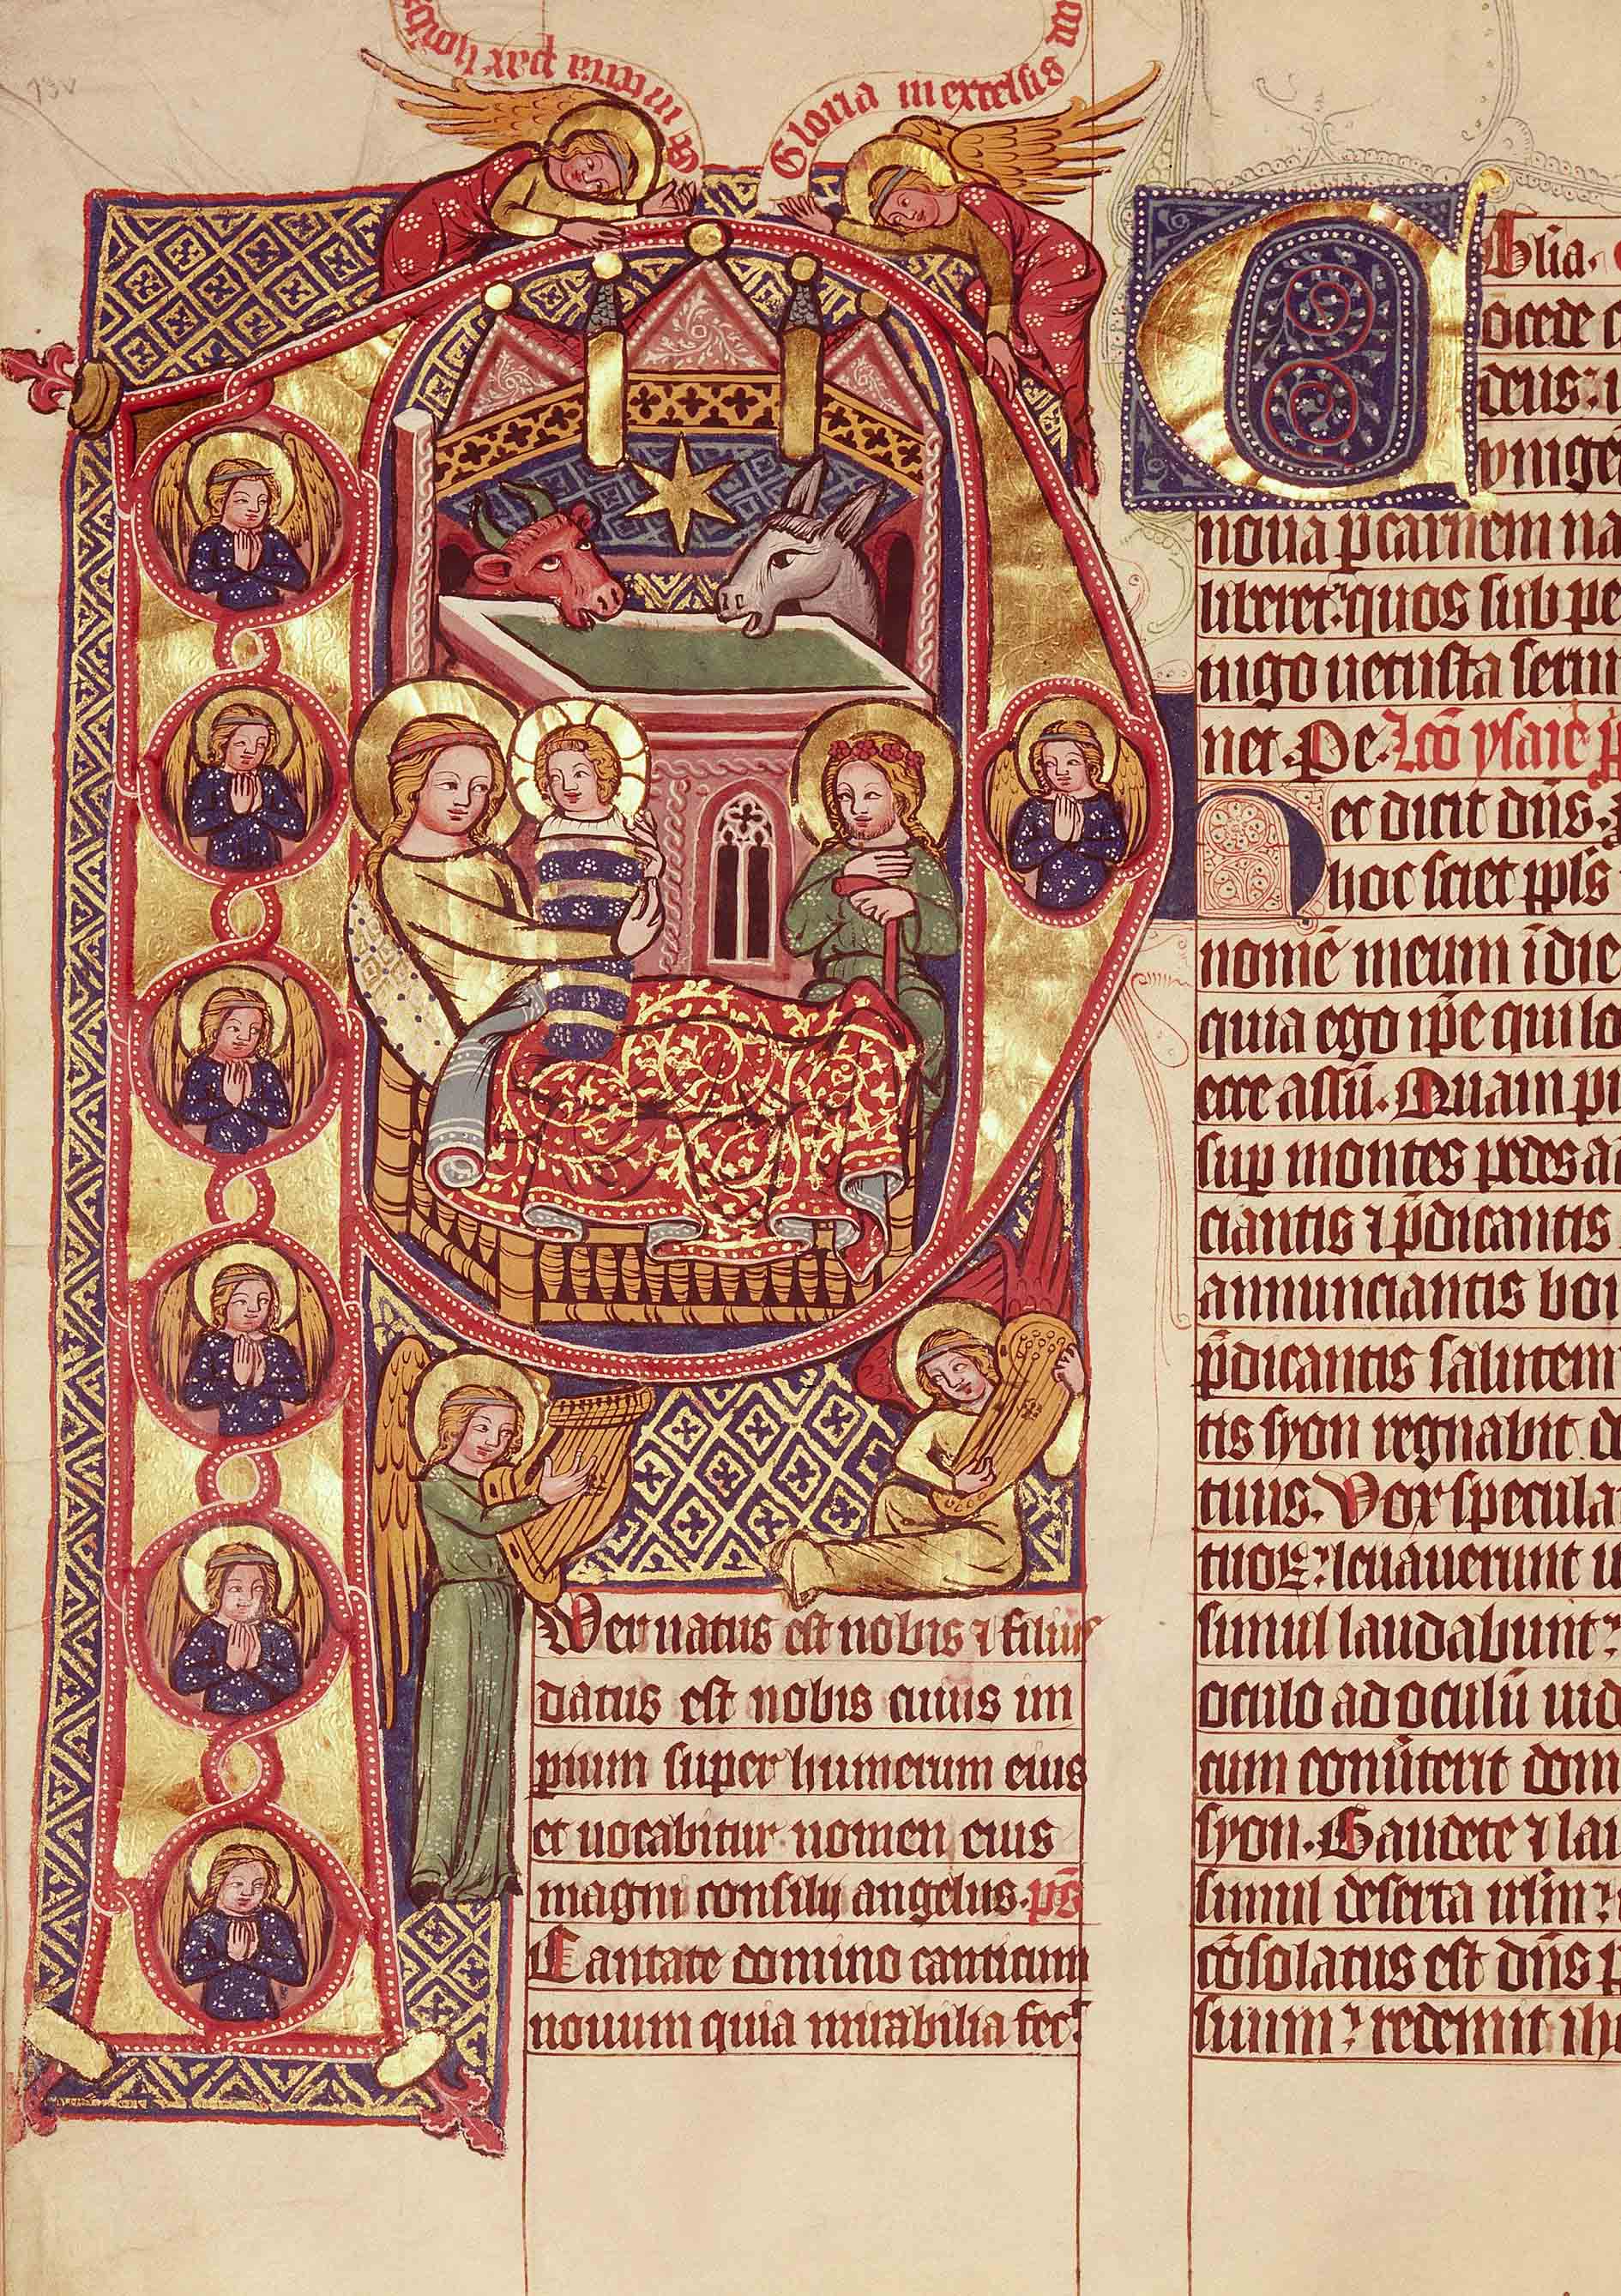 Gloria in excelsis
in terra pax
Wer natus est nobis ⁊ filius
datus est nobis cuius im
pium super humerum eius
et uocabitur nomen eius
magni consilij angelus. ps̄
Cantate domino canticum
nouum quia mirabilia fec
lia.
ocede
deus:
vnige
noua ꝑ carnem na
liberet: quos sub pe
iugo uetusta seruit
net. Pe. Lc̄o ysaie
ec dicit dn̄s.
hoc sciet ppl̄s
nomē meum ī die
quia ego ip̄e qui lo
ecce assū. Quam pu
sup montes pedes a
ciantis ⁊ p̄dicantis
annunciantis bon
p̄dicantis salutem
tis syon regnabit d
tuus. Vox specula
tuoꝝ: leuauerunt u
simul laudabunt:
oculo ad oculū uid
cum conūterit dom
syon. Gaudete ⁊ lau
simul deserta irl̄m:
cōsolatus est dn̄s p
suum: redemit ihr